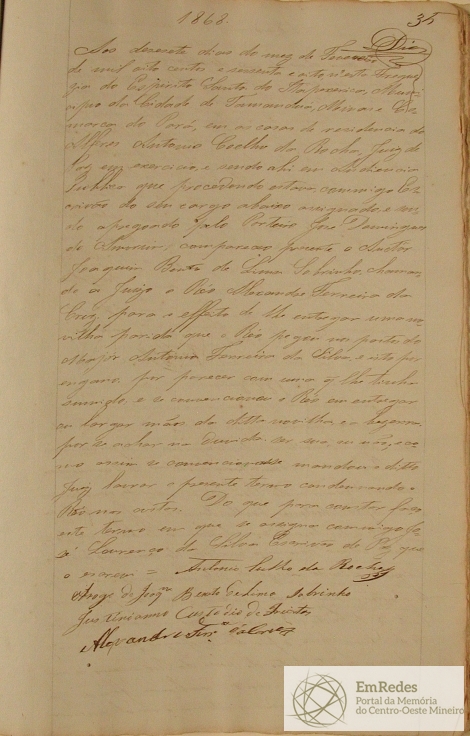 1868.
35
Dias
Aos desesete dias do mez de Fevereiro
de mil oito centos e sessenta e oito n'esta Fregue
zia do Espirito Santo de Itapecerica, Munici
pio da Cidade de Tamanduá, Minas e Co
marca do Pará, em as casas de residencia do
Alferes Antonio Coelho da Rocha, Juiz de
Paz em exercicio, e sendo ahi em audiencia
Publica que procedendo estava, comigo Es
crivão do seu cargo abaixo assignado, e sen
do apregoado pelo Porteiro José Domingues
de Amorim, compareceo presente o Autor
Joaquim Bento de Lima Sobrinho, chaman
do a Juizo o Réo Alexandre Ferreira da
Cruz, para o effeito de lhe entregar uma no
vilha parida que o Réo pegou nos pastos do
Major Antonio Ferreira da Silva, e isto por
engano, por parecer com uma q' lhe tinha
sumido, e se convencionou o Réo em entregar
ou largar mãos da ditta novilha e a beserra
por se achar na duvida ser sua, ou não, e co
mo assim se convencionarão mandou o ditto
Juiz lavrar o presente termo condemnando o
Réo nas custas. Do que para constar faço
este termo em que se assigna comigo Jo
sé Lourenço da Silva Escrivão de Paz que
o escrevi =
Antonio Coelho da Rocha
Arogo de Joaqm Bento de Lima Sobrinho
José Custodio de
Alexandre Ferra da Cruz
EmRedes
Portal da Memória
do Centro-Oeste Mineiro